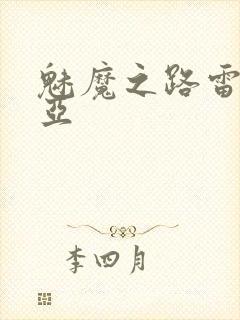 魅魔之路雷
亞
李四月